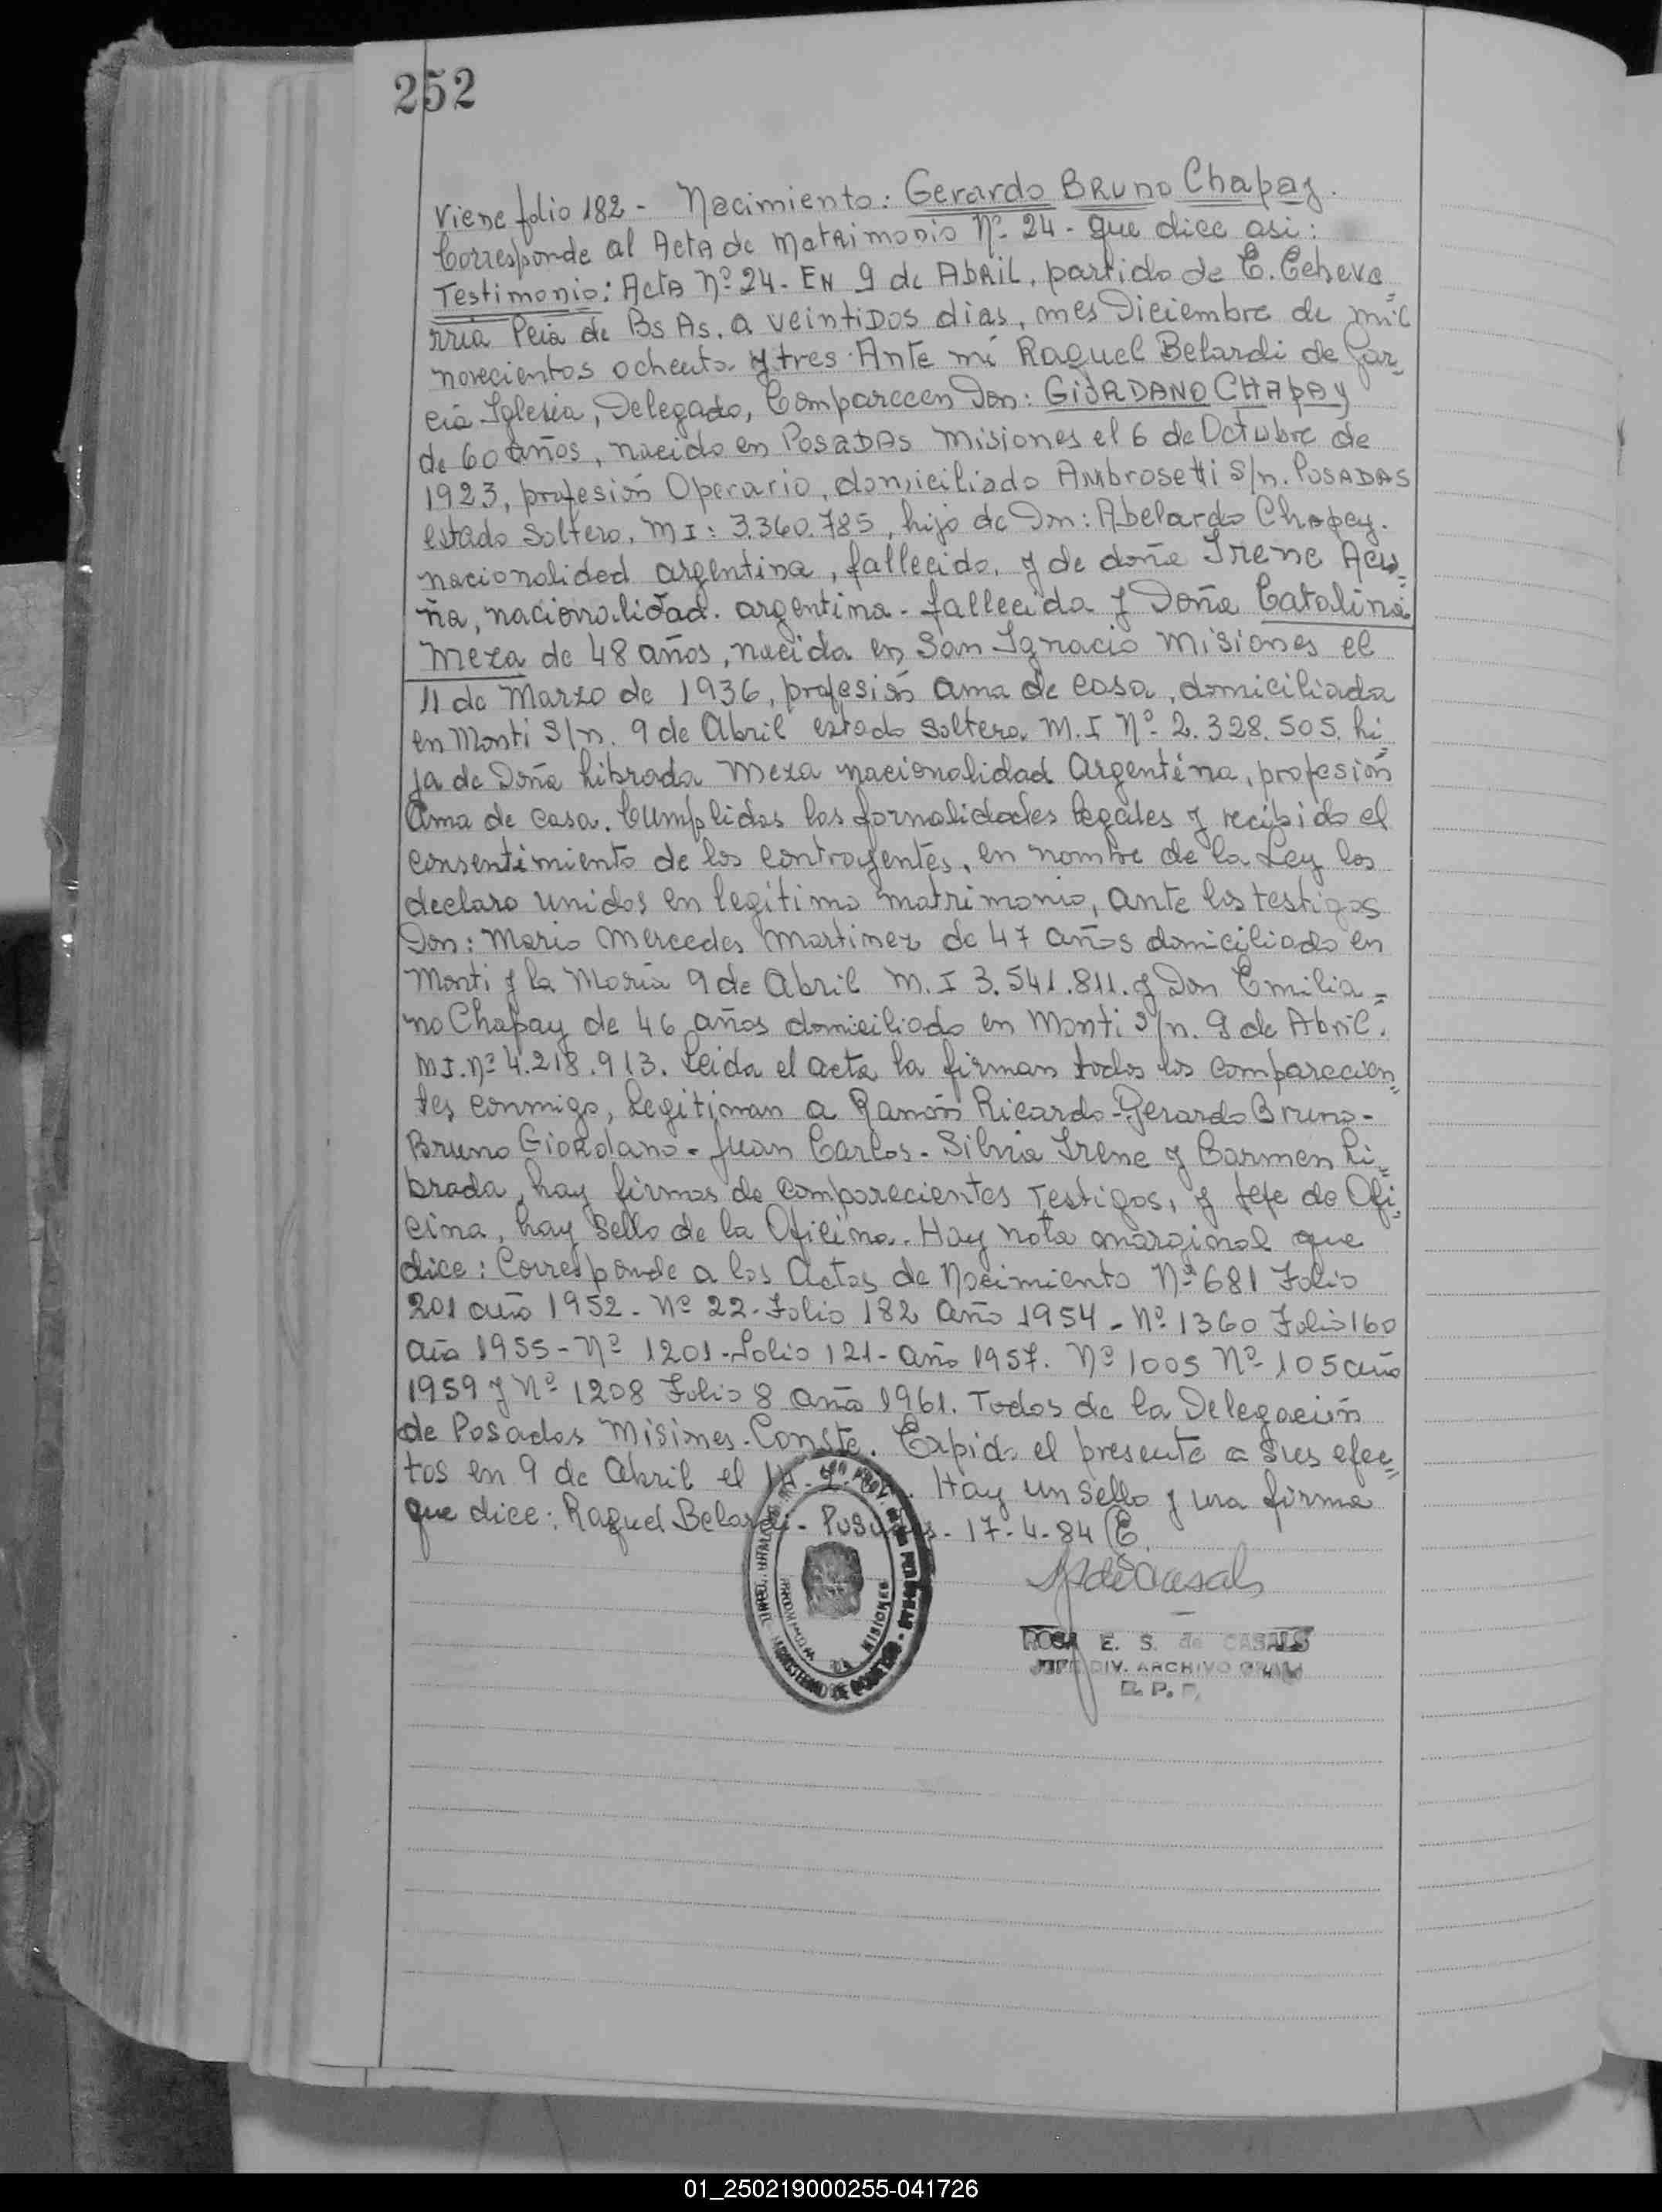 252
Viene folio 182 - Nacimiento: Gerardo BRUNO Chapay.
Corresponde al ActA de MatRimonio Nº 24 - que dice asi:
Testimonio: ActA Nº 24 - EN 9 de AbRiL, partido de E. Echeve=
rria Pcia de Bs As. a veintiDos dias, mes Diciembre de mil
novecientos ochenta y tres. Ante mí Raquel Belardi de Gar=
cia Iglesia, Delegado, Comparecen Don: GiORDANO CHApAy
de 60 años, nacido en POSADAs Misiones el 6 de Octubre de
1923, profesión Operario, domiciliado Ambrosetti S/n. POSADAS
estado Soltero, M I: 3.360.785, hijo de Dn: Abelardo Chapay.
nacionalided argentina, fallecido, y de doña Irene Acu=
ña, nacionalidad. argentina - fallecida y Doña Catalina
Meza de 48 años, nacida en San Ignacio Misiones el
11 de Marzo de 1936, profesión ama de casa, domiciliada
en Monti S/n. 9 de Abril estado Soltera. M. I Nº 2.328.505. hi=
ja de Doña Librada Meza nacionalidad Argentina, profesión
Ama de casa. Cumplidas las formalidades legales y recibido el
consentimiento de los contrayentes, en nombre de la Ley los
declaro unidos en legítimo matrimonio, ante los testigos
Don: Mario Mercedes Martinez de 47 años domiciliado en
Monti y la Moria 9 de Abril M. I 3.541.811. y Don Emilia=
no Chapay de 46 años domiciliado en Monti S/n. 9 de Abril.
M I. Nº 4.218.913. Leida el acta la firman todos los comparecien=
tes conmigo, Legitiman a Ramón Ricardo - Gerardo Bruno -
Bruno GioRdano - Juan Carlos - Silvia Irene y Carmen Li=
brada, hay firmas de comparecientes Testigos, y Jefe de Ofi=
cina, hay sello de la Oficina. Hay nota marginal que
dice: Corresponde a las Actas de Nacimiento Nº 681 Folio
201 año 1952 - Nº 22 - Folio 182 año 1954 - Nº 1360 Folio 160
año 1955 - Nº 1201 - Folio 121 - año 1957. Nº 1005 Nº 105 año
1959 y Nº 1208 Folio 8 año 1961. Todos de la Delegación
de Posadas Misiones - Conste. Expido el presente a sus efec=
tos en 9 de Abril el Hay un sello y una firma
que dice: Raquel Belardi - Posadas - 17-4-84
ROSA E. S. de CASALS
JEFE DIV. ARCHIVO GRAL
R. P. P.
PROVINCIA DE MISIONES
01_250219000255-041726